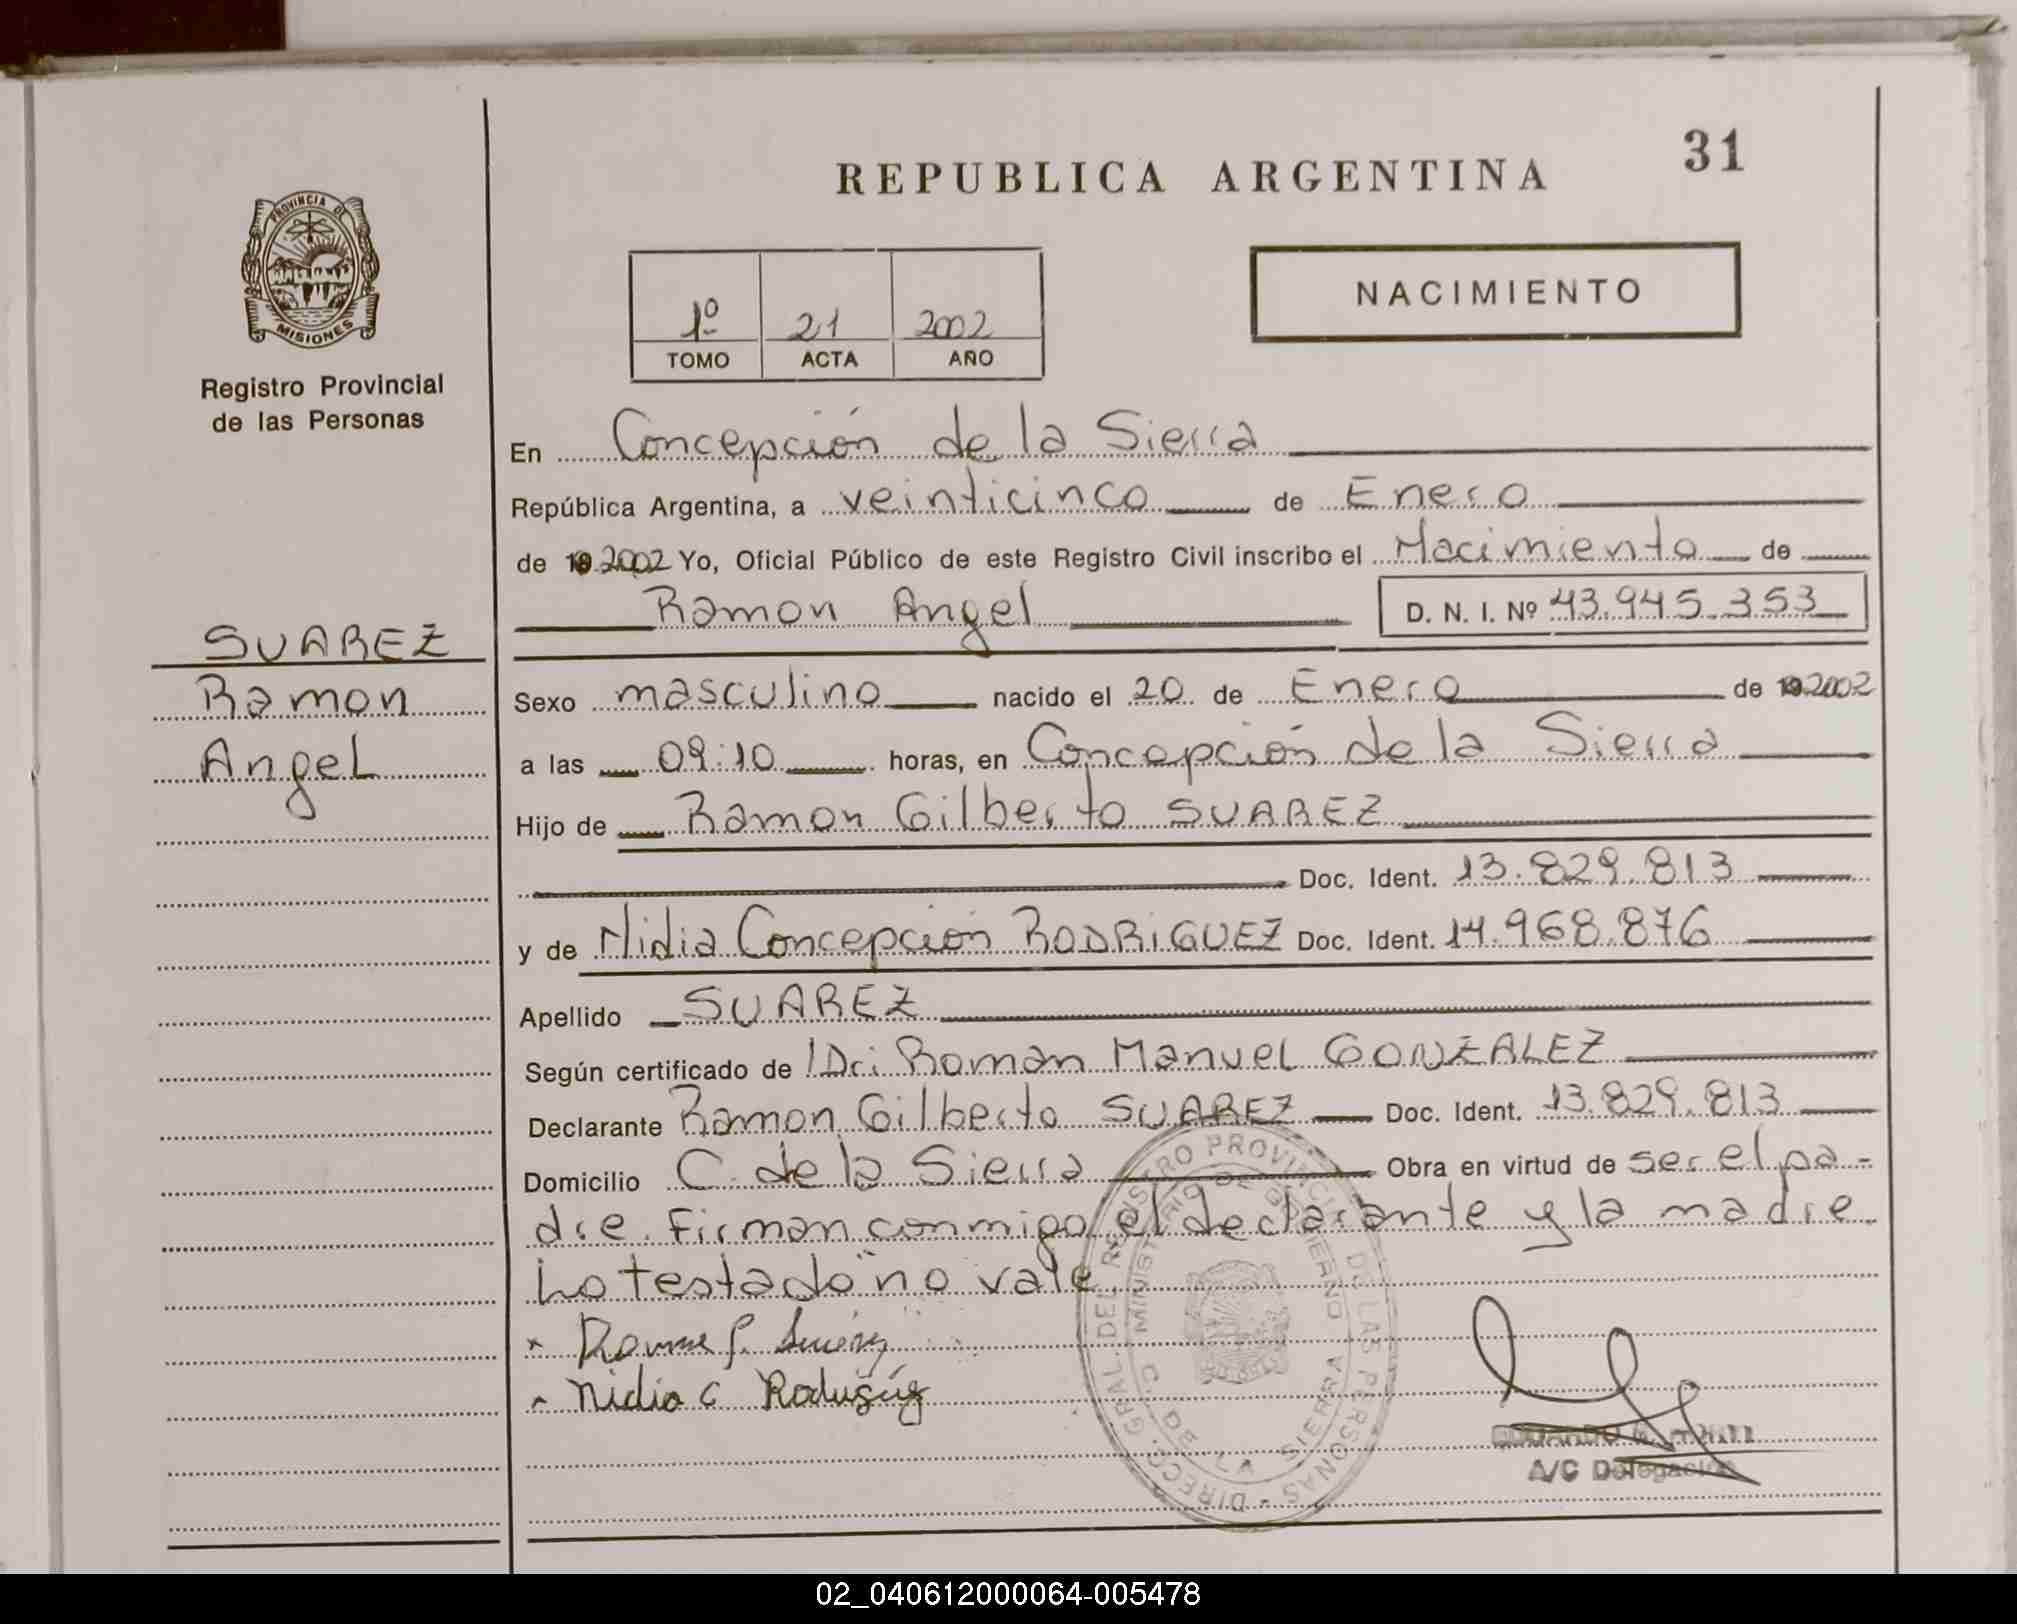 31
REPUBLICA ARGENTINA
PROVINCIA DE
MISIONES
Registro Provincial
de las Personas
1º 21 2002
TOMO ACTA AÑO
NACIMIENTO
En Concepción de la Sierra
República Argentina, a veinticinco de Enero
de 19 2002 Yo, Oficial Público de este Registro Civil inscribo el Nacimiento de
Ramon Angel D. N. I. Nº 43.945.353
SUAREZ
Ramon
Angel
Sexo masculino nacido el 20 de Enero de 19 2002
a las 09:10 horas, en Concepción de la Sierra
Hijo de Ramon Gilberto SUAREZ
Doc. Ident. 13.829.813
y de Nidia Concepción RODRIGUEZ Doc. Ident. 14.968.876
Apellido SUAREZ
Según certificado de Dr: Roman Manuel GONZALEZ
Declarante Ramon Gilberto SUAREZ Doc. Ident. 13.829.813
Domicilio C. de la Sierra Obra en virtud de ser el pa-
dre. Firman conmigo el declarante y la madre.
Lo testado no vale
Nidia C Rodriguez
DIRECC. GRAL. DEL REGISTRO PROVINCIAL DE LAS PERSONAS
MINISTERIO DE GOBIERNO
C. DE LA SIERRA
A/C Delegación
02_040612000064-005478